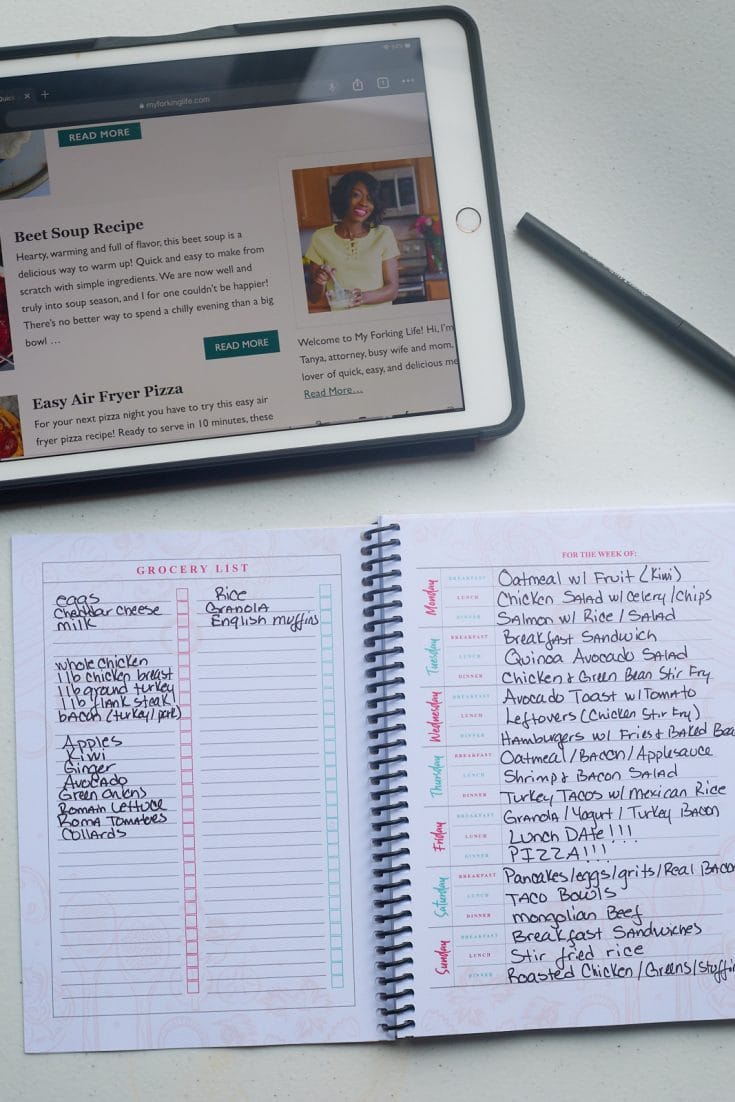 Quick
54%
myforkinglife.com
READ MORE
Beet Soup Recipe
Hearty, warming and full of flavor, this beet soup is a
delicious way to warm up! Quick and easy to make from
scratch with simple ingredients. We are now well and
truly into soup season, and I for one couldn't be happier!
There's no better way to spend a chilly evening than a big
bowl …
READ MORE
Easy Air Fryer Pizza
For your next pizza night you have to try this easy air
fryer pizza recipe! Ready to serve in 10 minutes, these
Welcome to My Forking Life! Hi, I'm
Tanya, attorney, busy wife and mom,
lover of quick, easy, and delicious me
Read More…
GROCERY LIST
eggs
Cheddar Cheese
Milk
whole chicken
1 lb chicken breast
1 lb ground turkey
1 lb flank steak
bacon (turkey/pork)
Apples
Kiwi
Ginger
Avocado
Green onions
Romain Lettuce
Roma Tomatoes
Collards
Rice
Granola
English muffins
FOR THE WEEK OF:
Monday
BREAKFAST Oatmeal w/ Fruit (Kiwi)
LUNCH Chicken Salad w/ Celery/Chips
DINNER Salmon w/ Rice/Salad
Tuesday
BREAKFAST Breakfast Sandwich
LUNCH Quinoa Avocado Salad
DINNER Chicken & Green Bean Stir Fry
Wednesday
BREAKFAST Avocado Toast w/ Tomato
LUNCH Leftovers (Chicken Stir Fry)
DINNER Hamburgers w/ Fries & Baked Bea
Thursday
BREAKFAST Oatmeal/Bacon/Applesauce
LUNCH Shrimp & Bacon Salad
DINNER Turkey Tacos w/ Mexican Rice
Friday
BREAKFAST Granola/Yogurt/Turkey Bacon
LUNCH Lunch Date!!!
DINNER PIZZA!!!
Saturday
BREAKFAST Pancakes/eggs/grits/Real Baco
LUNCH Taco Bowls
DINNER mongolian Beef
Sunday
BREAKFAST Breakfast Sandwiches
LUNCH Stir fried rice
DINNER Roasted Chicken/Greens/Stuffin